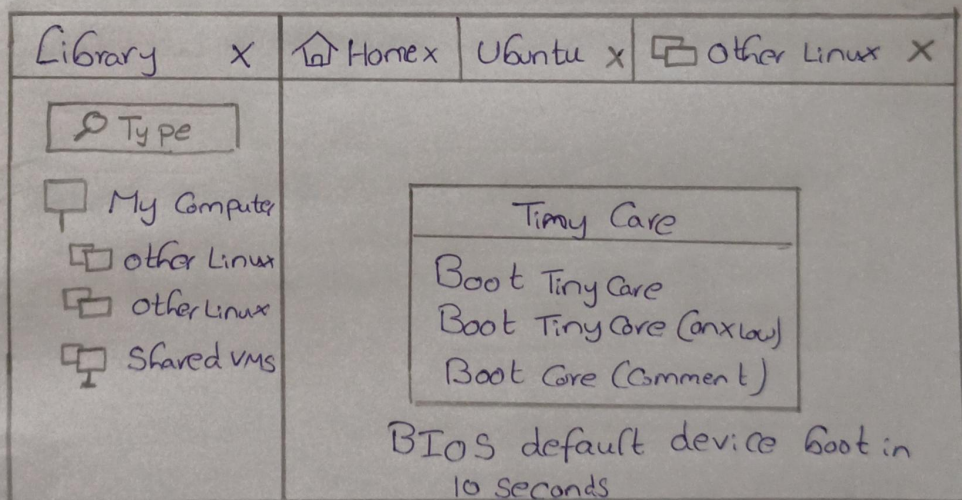 Library X
Home x
Ubuntu x
Other Linux X
Type
My Computer
other Linux
other Linux
Shared VMS
Timy Care
Boot Tiny Care
Boot Tiny Core (onxlow)
Boot Core (Comment)
BIOS default device boot in
10 seconds